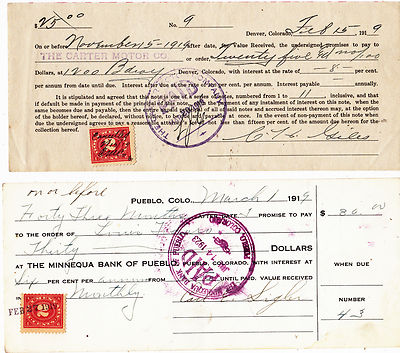 $25.00 No. 9 Denver, Colorado, Feb 15 1919
On or before November 5-1919 after date, for Value Received, the undersigned promises to pay to
THE CARTER MOTOR CO or order, Twenty five & no/100
Dollars, at 1200 Bdway, Denver, Colorado, with interest at the rate of 8 per cent.
per annum from date until due. Interest after due at the rate of per cent. per annum until paid.
It is stipulated and agreed that this note is one of a series of notes, numbered from 1 to 11, inclusive, and that
if default be made in payment of the principal of this note, or in the payment of any instalment of interest on this note, when the
same becomes due and payable, then all notes of said series unpaid and accrued interest thereon may, at the option
of the holder hereof, be declared, without notice, to be due and payable at once. In the event of non-payment of this note when
due the undersigned agrees to pay a reasonable attorney's fee of not less than fifteen per cent. of the amount due hereon for the
collection hereof.
2
on or before
PUEBLO, COLO., March 1 1919
Forty Three Months AFTER DATE I PROMISE TO PAY $30.00
TO THE ORDER OF
Thirty DOLLARS
AT THE MINNEQUA BANK OF PUEBLO, PUEBLO, COLORADO, WITH INTEREST AT WHEN DUE
Six PER CENT PER annum UNTIL PAID. VALUE RECEIVED
Monthly
NUMBER
43
PAID
1923
2